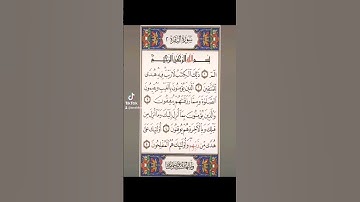 سورة البقرة ٢
بسم الله الرحمن الرحيم
الم ١ ذلك الكتب لا ريب فيه هدى
للمتقين ٢ الذين يؤمنون بالغيب ويقيمون
الصلوة ومما رزقنهم ينفقون ٣
والذين يؤمنون بما أنزل إليك وما أنزل من
قبلك وبالأخرة هم يوقنون ٤ أولئك على
هدى من ربهم وأولئك هم المفلحون ٥
TikTok